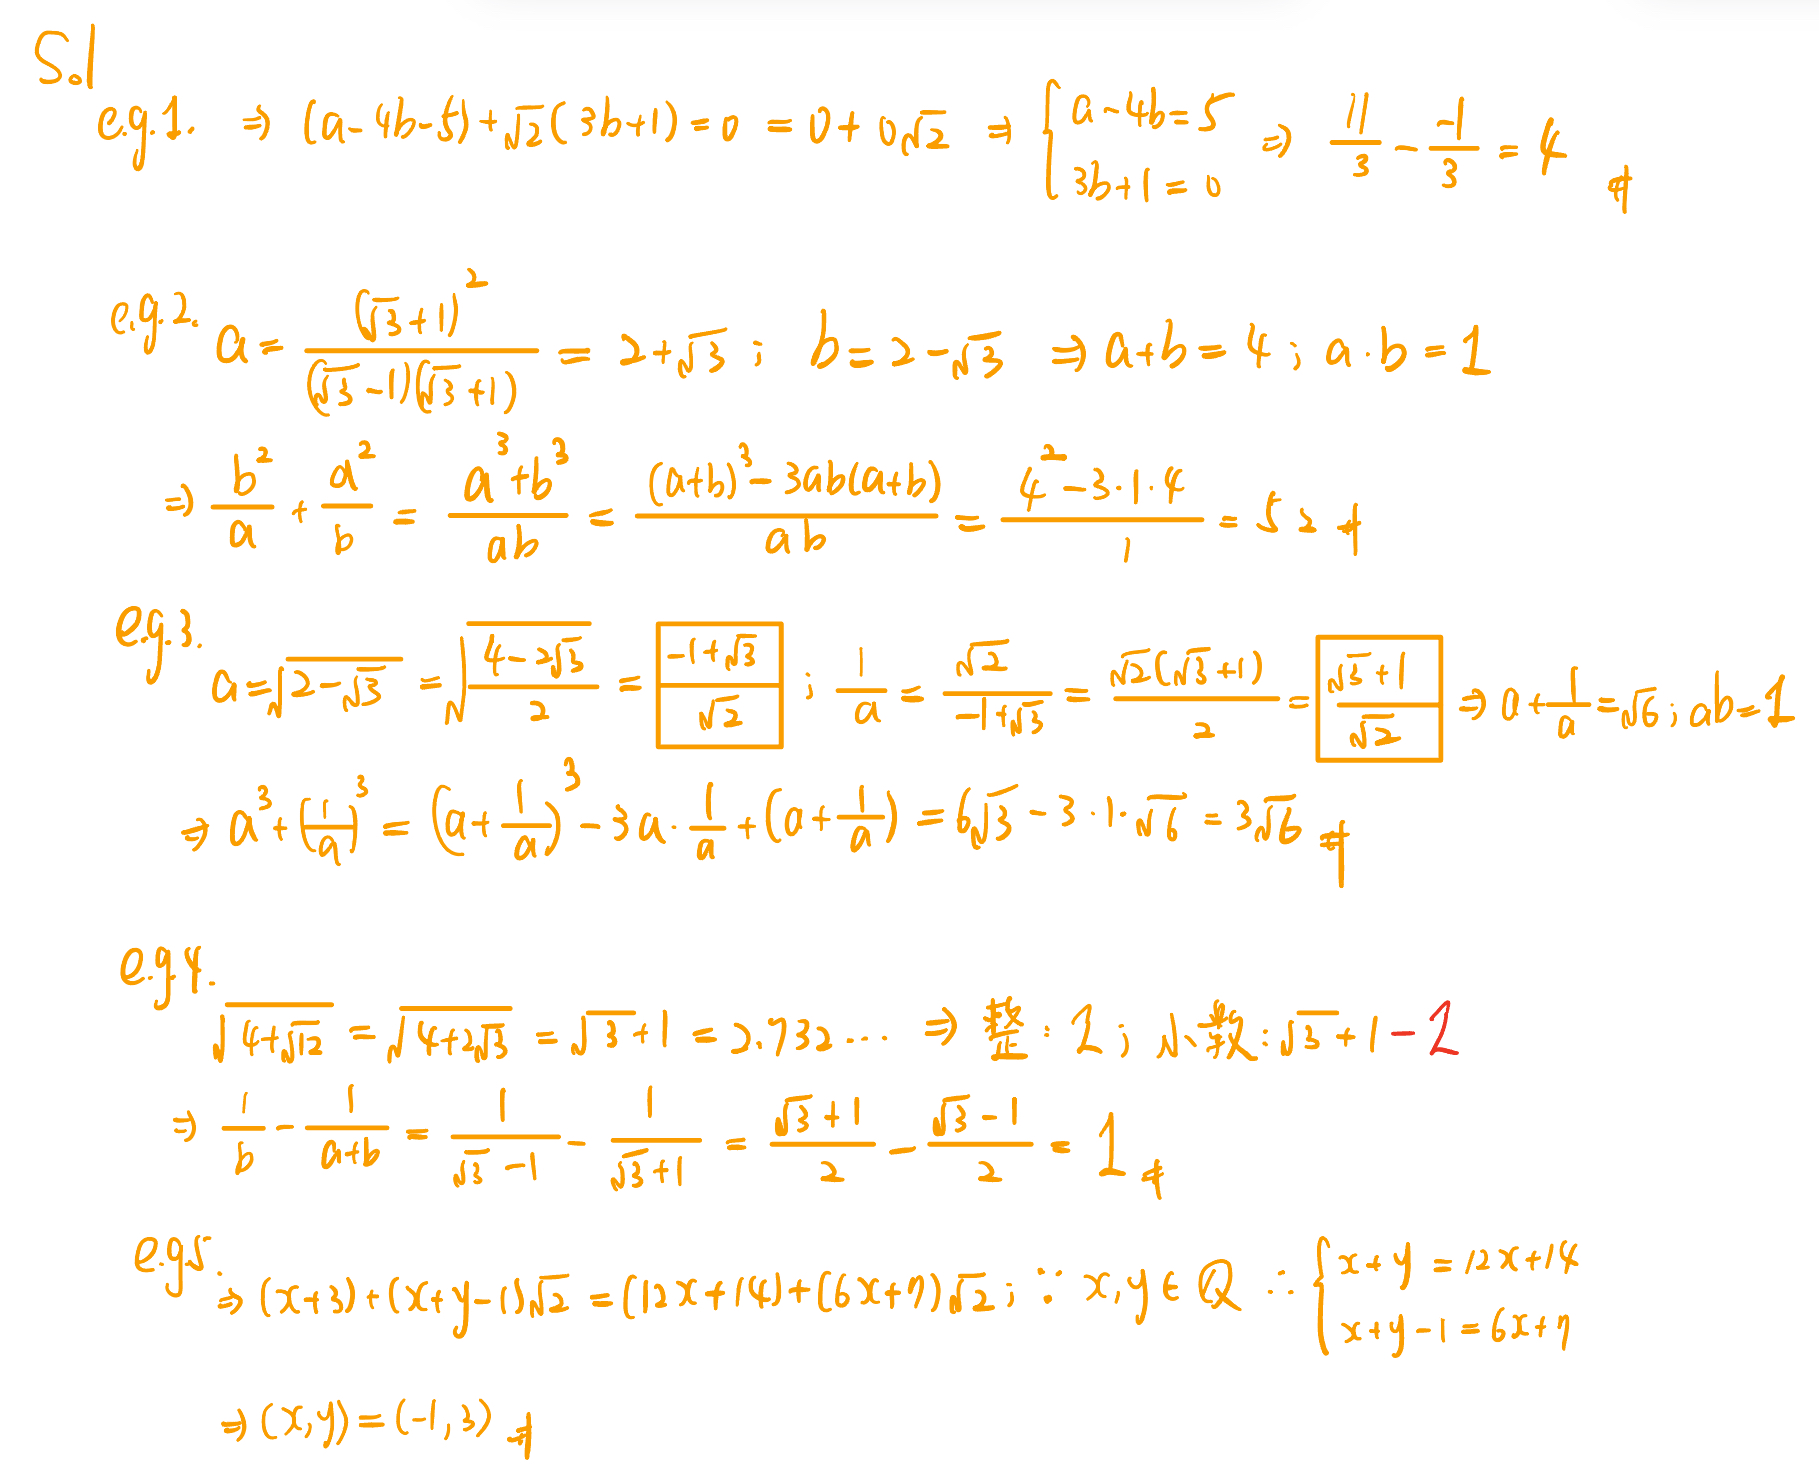 S.1
e.g.1. ⇒ (a-4b-5)+√2(3b+1)=0 = 0+0√2 ⇒ { a-4b=5 ; 3b+1=0 ⇒ 11/3 - -1/3 = 4 #
e.g.2. a = (√3+1)^2 / (√3-1)(√3+1) = 2+√3 ; b=2-√3 ⇒ a+b=4 ; a·b=1
⇒ b^2/a + a^2/b = (a^3+b^3)/ab = ((a+b)^3-3ab(a+b))/ab = (4^2-3·1·4)/1 = 52 #
e.g.3. a=√(2-√3) = √((4-2√3)/2) = (-1+√3)/√2 ; 1/a = √2/(-1+√3) = √2(√3+1)/2 = (√3+1)/√2 ⇒ a+1/a=√6 ; ab=1
⇒ a^3+(1/a)^3 = (a+1/a)^3 - 3a·1/a+(a+1/a) = 6√3-3·1·√6 = 3√6 #
e.g.4. √(4+√12) = √(4+2√3) = √3+1 = 2.732... ⇒ 整: 2 ; 小数: √3+1-2
⇒ 1/b - 1/(a+b) = 1/(√3-1) - 1/(√3+1) = (√3+1)/2 - (√3-1)/2 = 1 #
e.g.5. ⇒ (x+3)+(x+y-1)√2 = (12x+14)+(6x+7)√2 ; ∵ x,y∈Q ∴ { x+y=12x+14 ; x+y-1=6x+7
⇒ (x,y)=(-1,3) #